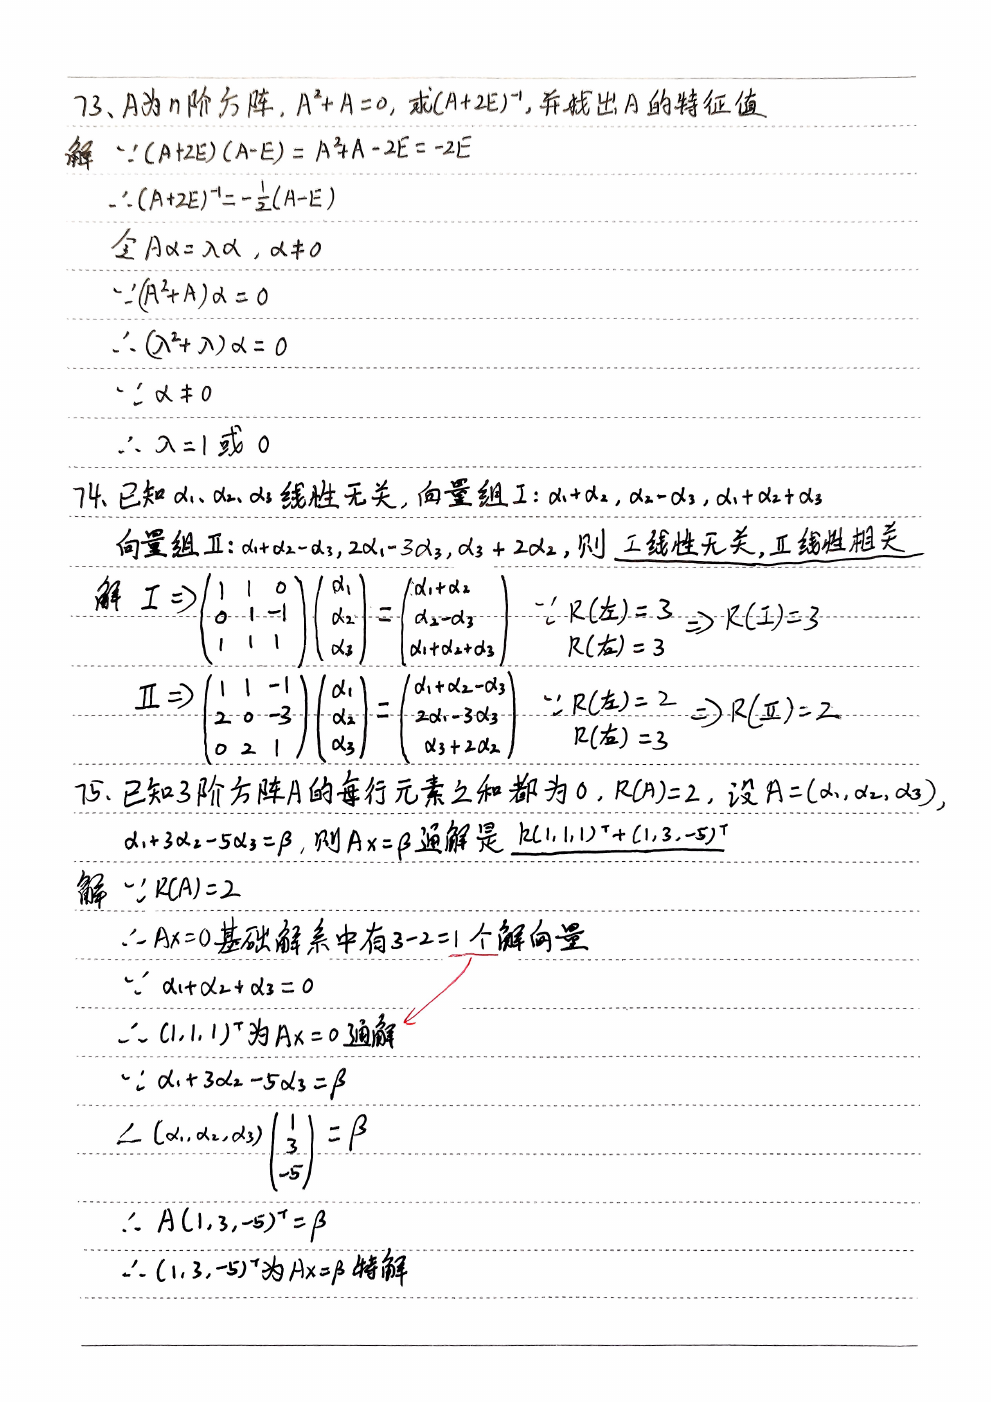 73、A为n阶方阵, A²+A=0, 求(A+2E)⁻¹, 并找出A的特征值
解 ∵(A+2E)(A-E) = A²+A-2E = -2E
∴(A+2E)⁻¹=-½(A-E)
令 Aα=λα , α≠0
∵(A²+A)α=0
∴(λ²+λ)α=0
∵ α≠0
∴ λ=1或 0
74、已知α₁、α₂、α₃线性无关, 向量组Ⅰ: α₁+α₂, α₂-α₃, α₁+α₂+α₃
向量组Ⅱ: α₁+α₂-α₃, 2α₁-3α₃, α₃+2α₂, 则 Ⅰ线性无关,Ⅱ线性相关
解 Ⅰ⇒ (1 1 0) (α₁) = (α₁+α₂) ∵ R(左)=3 ⇒ R(Ⅰ)=3
(0 1 -1) (α₂) (α₂-α₃) R(右)=3
(1 1 1) (α₃) (α₁+α₂+α₃)
Ⅱ⇒ (1 1 -1) (α₁) = (α₁+α₂-α₃) ∵ R(左)=2 ⇒ R(Ⅱ)=2
(2 0 -3) (α₂) (2α₁-3α₃) R(右)=3
(0 2 1) (α₃) (α₃+2α₂)
75、已知3阶方阵A的每行元素之和都为0, R(A)=2, 设A=(α₁,α₂,α₃),
α₁+3α₂-5α₃=β, 则Ax=β通解是 k(1,1,1)ᵀ+(1,3,-5)ᵀ
解 ∵R(A)=2
∴Ax=0基础解系中有3-2=1个解向量
∵ α₁+α₂+α₃=0
∴ (1,1,1)ᵀ为Ax=0通解
∵ α₁+3α₂-5α₃=β
∠ (α₁,α₂,α₃) (1) = β
(3)
(-5)
∴ A(1,3,-5)ᵀ=β
∴ (1,3,-5)ᵀ为Ax=β特解